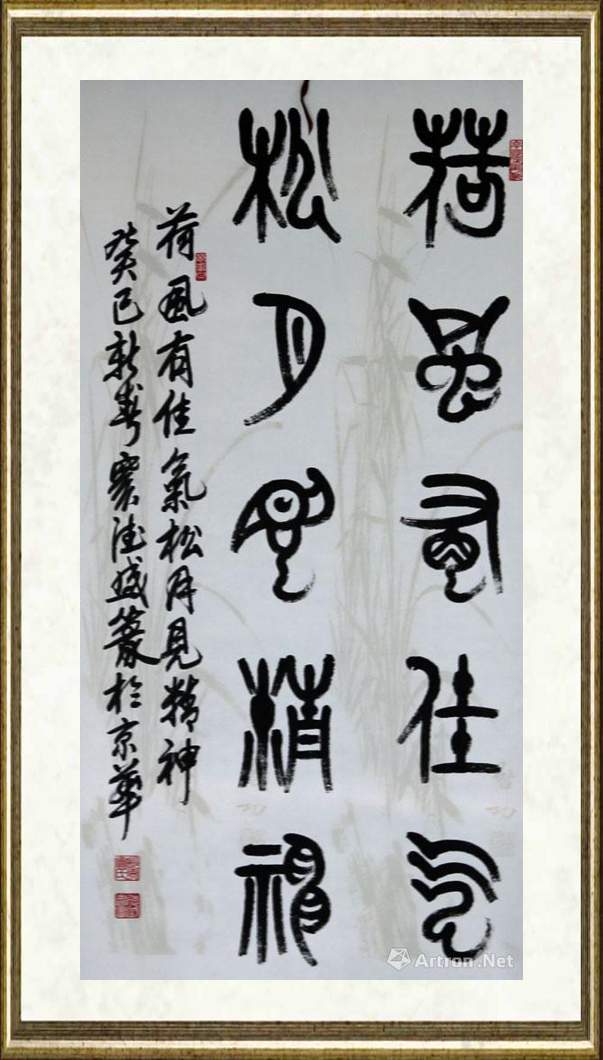 荷風有佳氣
松月見精神
荷風有佳氣松月見精神
癸巳新春裴德城篆於京華
Artron.Net